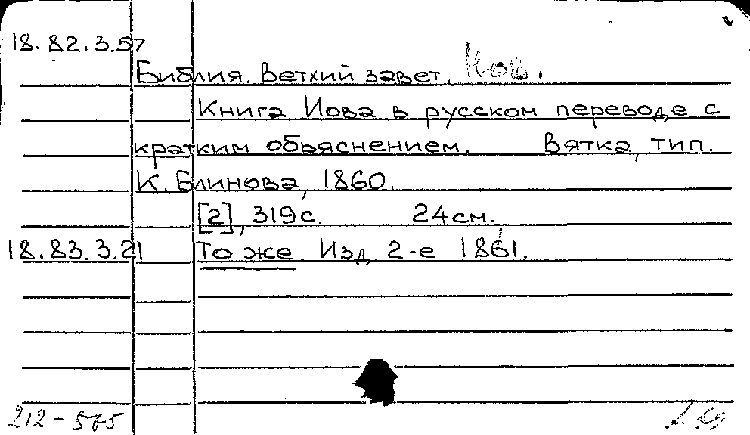 18.82.3.57
Библия. Ветхий завет.
Книга Иова в русском переводе с
кратким объяснением. Вятка, тип.
К. Блинова, 1860.
[2], 319с. 24см.
18.83.3.21 То же. Изд. 2-е 1861.
212-565